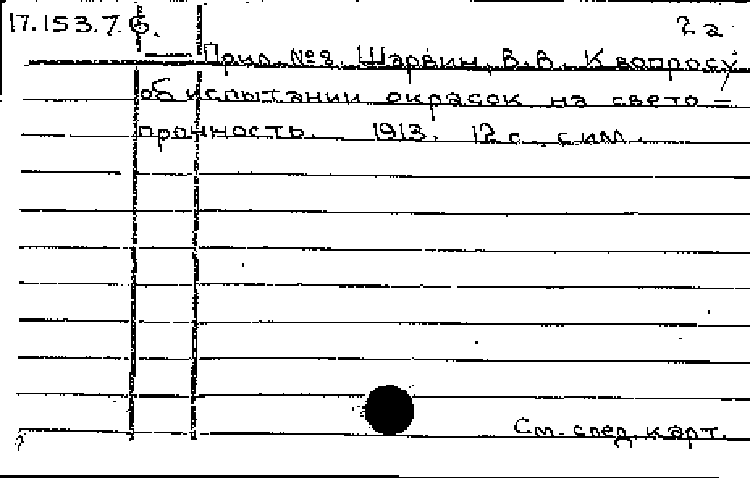 17.153.7.6. 2a
Прил. №2. Шарвин, В.В. К вопросу
об испытании окрасок на свето-
прочность. 1913. 12 с. с илл.
См. след. карт.